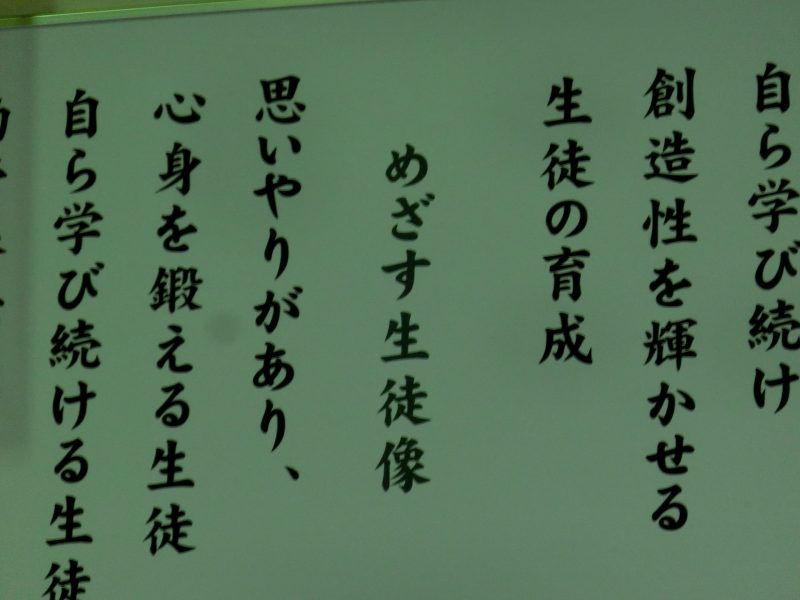 自ら学び続け
創造性を輝かせる
生徒の育成
めざす生徒像
思いやりがあり、
心身を鍛える生徒
自ら学び続ける生徒